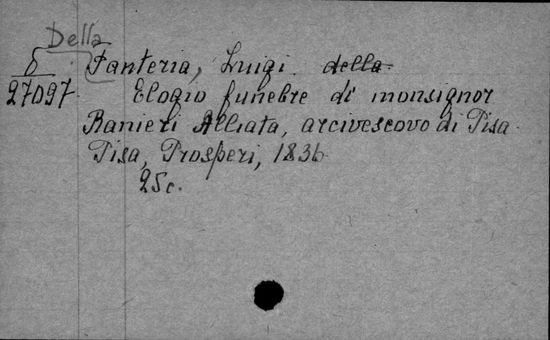 Della
δ Fanteria, Luigi della
27097 Elogio funebre di monsignor
Ranieri Alliata, arcivescovo di Pisa
Pisa, Prosperi, 1836
25c.